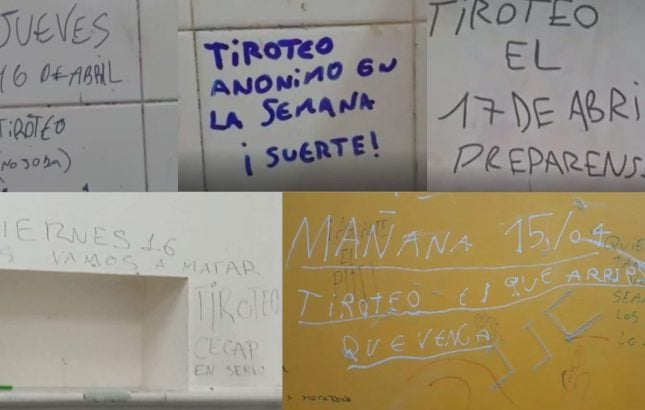 JUEVES
16 DE ABRIL
TIROTEO
(NO JODA)
TIROTEO
ANONIMO EN
LA SEMANA
¡SUERTE!
TIROTEO
EL
17 DE ABRI
PREPARENS
IERNES 16
S VAMOS A MATAR
TIROTEO
CECAP
EN SERIO
MAÑANA 15/04
TIROTEO EL QUE ARRIE
QUE VENGA
QUIE
SEA
LOS